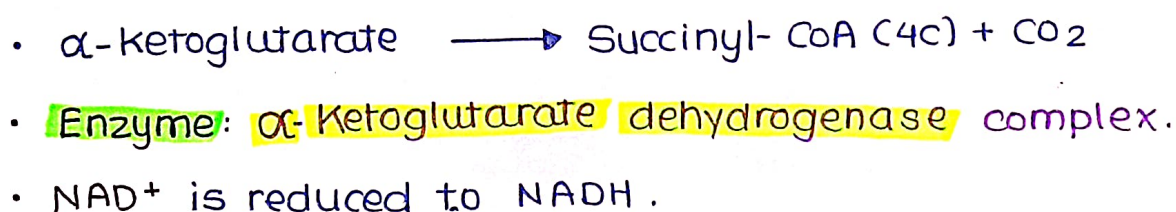 • α-ketoglutarate ⟶ Succinyl-CoA (4C) + CO2
• Enzyme: α-Ketoglutarate dehydrogenase complex.
• NAD+ is reduced to NADH.